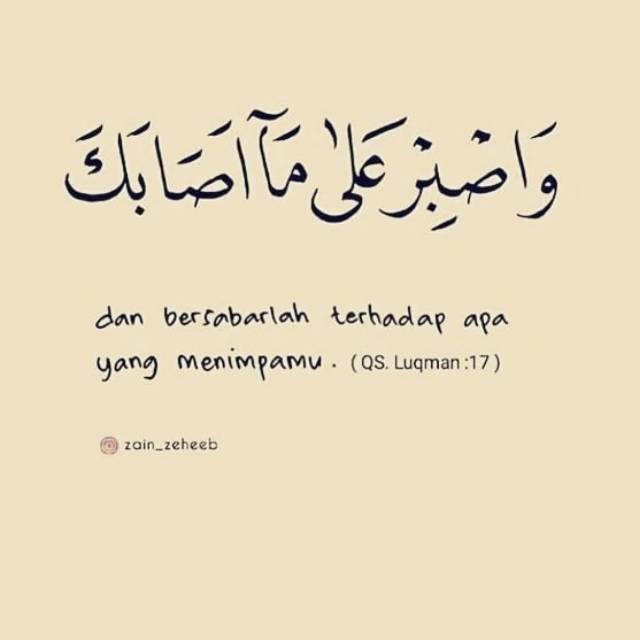 وَاصْبِرْ عَلٰى مَآ اَصَابَكَ
dan bersabarlah terhadap apa
yang menimpamu. (QS. Luqman :17)
zain_zeheeb